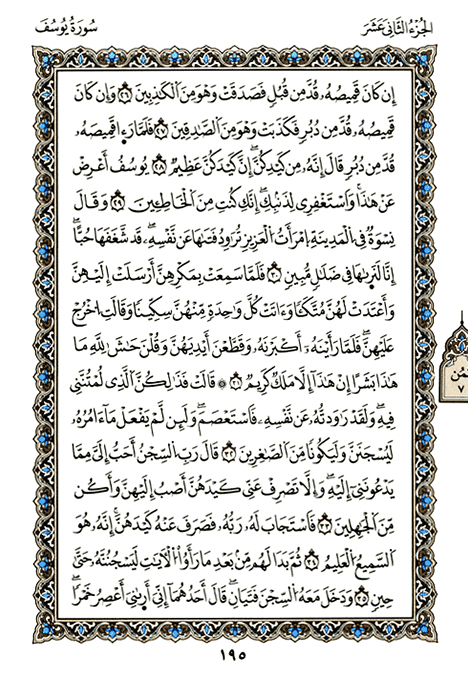 الجُزْءُ الثَّانِي عَشَرَ
سُورَةُ يُوسُفَ
إِن كَانَ قَمِيصُهُۥ قُدَّ مِن قُبُلٖ فَصَدَقَتْ وَهُوَ مِنَ ٱلْكَٰذِبِينَ ٢٦ وَإِن كَانَ
قَمِيصُهُۥ قُدَّ مِن دُبُرٖ فَكَذَبَتْ وَهُوَ مِنَ ٱلصَّٰدِقِينَ ٢٧ فَلَمَّا رَءَا قَمِيصَهُۥ
قُدَّ مِن دُبُرٖ قَالَ إِنَّهُۥ مِن كَيْدِكُنَّ إِنَّ كَيْدَكُنَّ عَظِيمٞ ٢٨ يُوسُفُ أَعْرِضْ
عَنْ هَٰذَا وَٱسْتَغْفِرِي لِذَنۢبِكِ إِنَّكِ كُنتِ مِنَ ٱلْخَاطِـِٕينَ ٢٩ وَقَالَ
نِسْوَةٞ فِي ٱلْمَدِينَةِ ٱمْرَأَتُ ٱلْعَزِيزِ تُرَٰوِدُ فَتَىٰهَا عَن نَّفْسِهِۦ قَدْ شَغَفَهَا حُبًّا
إِنَّا لَنَرَىٰهَا فِي ضَلَٰلٖ مُّبِينٖ ٣٠ فَلَمَّا سَمِعَتْ بِمَكْرِهِنَّ أَرْسَلَتْ إِلَيْهِنَّ
وَأَعْتَدَتْ لَهُنَّ مُتَّكَـٔٗا وَءَاتَتْ كُلَّ وَٰحِدَةٖ مِّنْهُنَّ سِكِّينٗا وَقَالَتُ ٱخْرُجْ
عَلَيْهِنَّ فَلَمَّا رَأَيْنَهُۥٓ أَكْبَرْنَهُۥ وَقَطَّعْنَ أَيْدِيَهُنَّ وَقُلْنَ حَٰشَ لِلَّهِ مَا
هَٰذَا بَشَرًا إِنْ هَٰذَآ إِلَّا مَلَكٞ كَرِيمٞ ٣١ ۞ قَالَتْ فَذَٰلِكُنَّ ٱلَّذِي لُمْتُنَّنِي
فِيهِ وَلَقَدْ رَٰوَدتُّهُۥ عَن نَّفْسِهِۦ فَٱسْتَعْصَمَ وَلَئِن لَّمْ يَفْعَلْ مَآ ءَامُرُهُۥ
لَيُسْجَنَنَّ وَلَيَكُونٗا مِّنَ ٱلصَّٰغِرِينَ ٣٢ قَالَ رَبِّ ٱلسِّجْنُ أَحَبُّ إِلَيَّ مِمَّا
يَدْعُونَنِيٓ إِلَيْهِ وَإِلَّا تَصْرِفْ عَنِّي كَيْدَهُنَّ أَصْبُ إِلَيْهِنَّ وَأَكُن
مِّنَ ٱلْجَٰهِلِينَ ٣٣ فَٱسْتَجَابَ لَهُۥ رَبُّهُۥ فَصَرَفَ عَنْهُ كَيْدَهُنَّ إِنَّهُۥ هُوَ
ٱلسَّمِيعُ ٱلْعَلِيمُ ٣٤ ثُمَّ بَدَا لَهُم مِّنۢ بَعْدِ مَا رَأَوُاْ ٱلْأٓيَٰتِ لَيَسْجُنُنَّهُۥ حَتَّىٰ
حِينٖ ٣٥ وَدَخَلَ مَعَهُ ٱلسِّجْنَ فَتَيَانِ قَالَ أَحَدُهُمَآ إِنِّيٓ أَرَىٰنِيٓ أَعْصِرُ خَمْرٗا
ثمن
٧
١٩٥